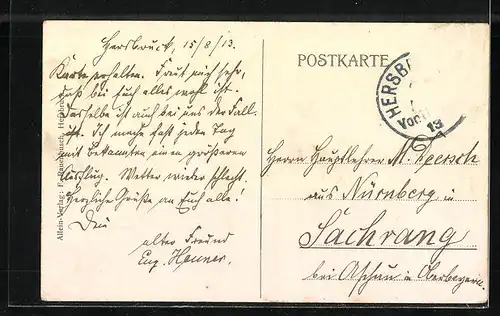 Hersbruck, 15/8/13.
Karte erhalten. Freut mich sehr,
daß bei Euch alles wohl ist.
Dasselbe ist auch bei uns der Fall.
Ich mache fast jeden Tag
mit Bekannten einen größeren
Ausflug. Wetter wieder schlecht.
Herzliche Grüße an Euch alle!
Dein
alter Freund
Eug. Henner.
POSTKARTE
HERSB
13
Herrn Hauptlehrer M.
aus Nürnberg in
Sachrang
bei Aschau in Oberbayern.
Allein-Verlag: